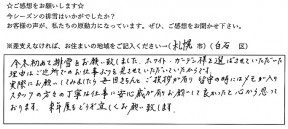 ☆ご感想をお願いします☆
今シーズンの排雪はいかがでしたか?
お客様の声が、私たちの原動力になっています。ぜひ、ご感想をお聞かせ下さい。
※差支えなければ、お住まいの地域をご記入ください→(札幌 市)(白石 区)
今冬初めて排雪をお願い致しました。ホワイト・ガーデン様を選ばせていただいた
理由はご近所でのお仕事ぶりを見させていただいていたからです。
実際にお願いしてみましたら毎回きちんとご挨拶が有り
スタッフの方々の丁寧な仕事に安心感が有りお願いして良かったと心から思って
おります。来年度もどうぞ宜しくお願い致します。